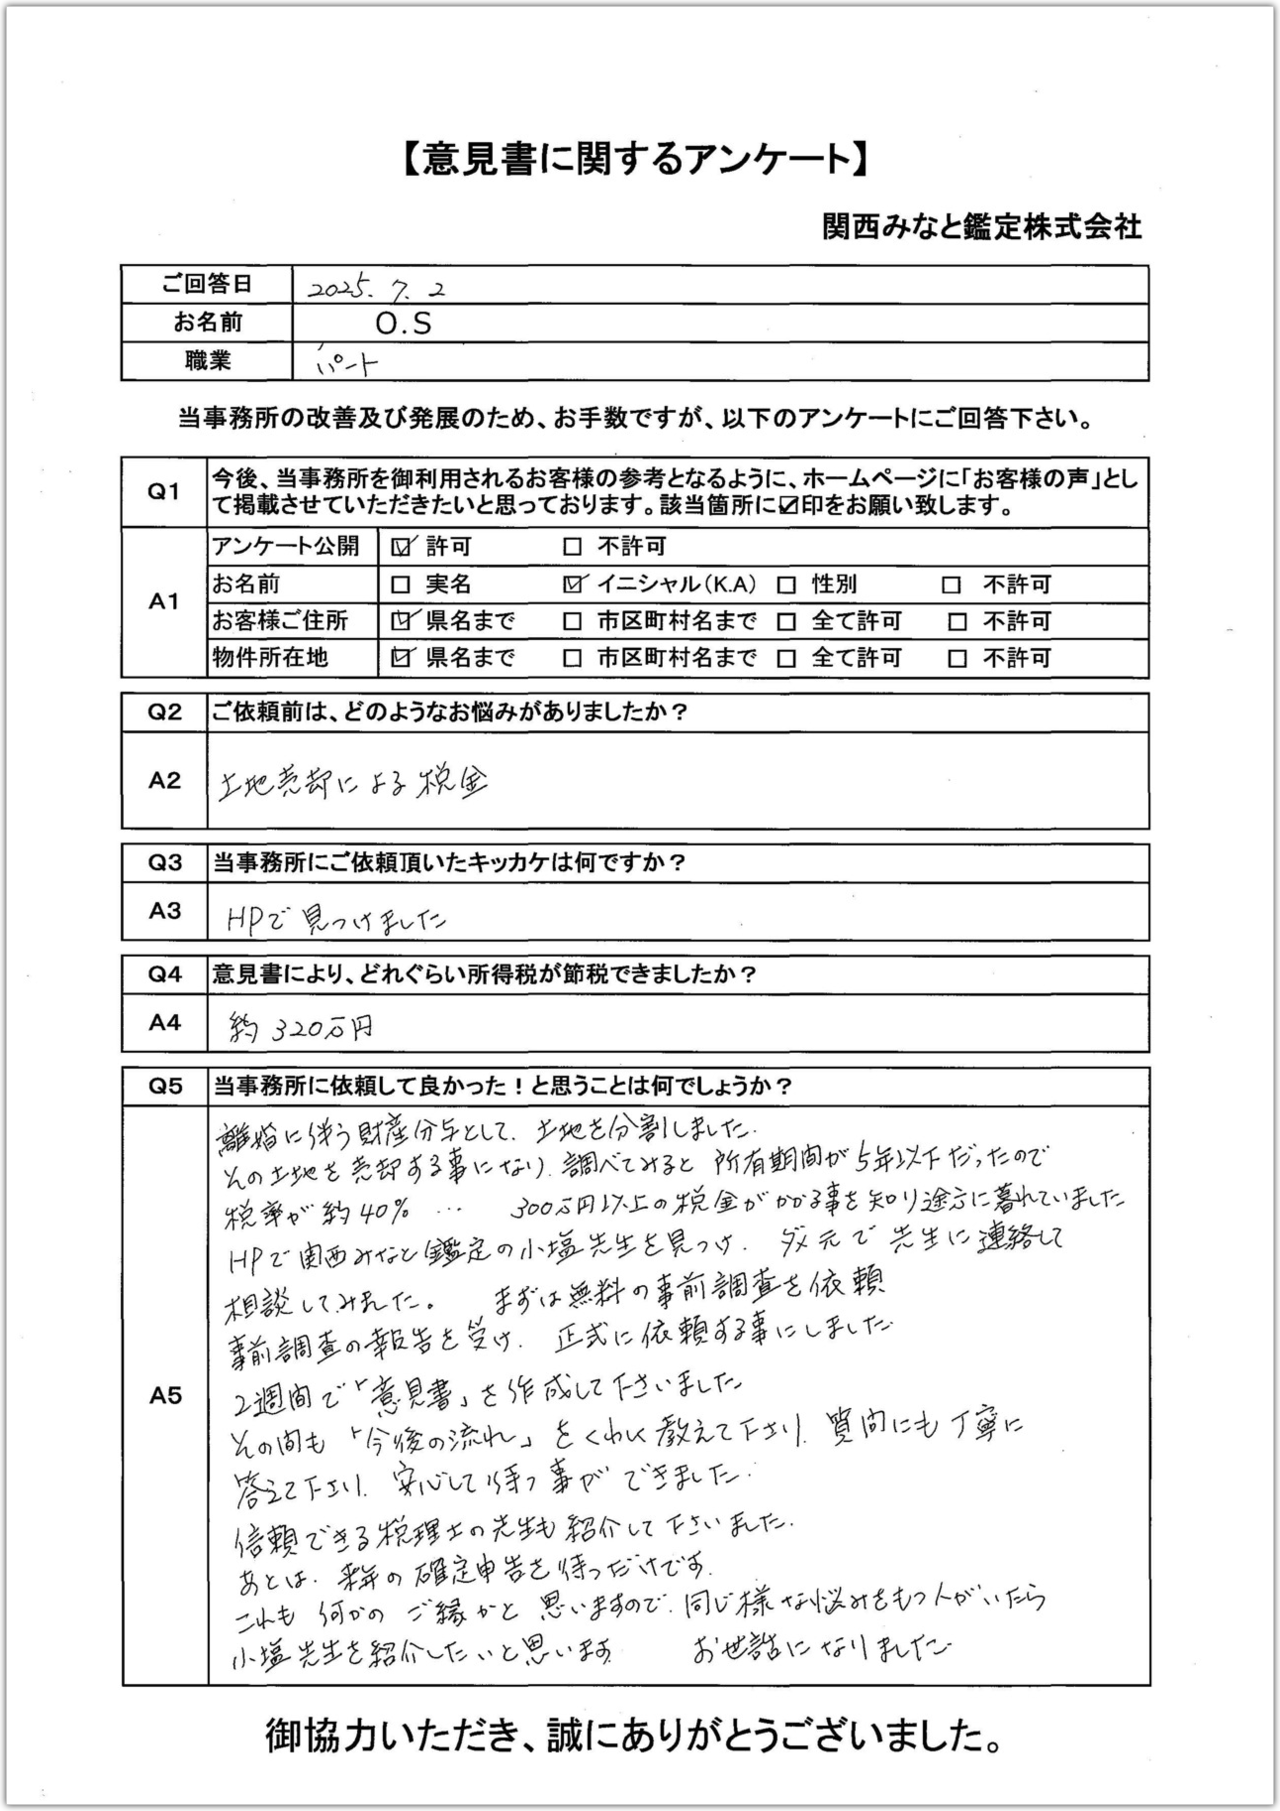 【意見書に関するアンケート】
関西みなと鑑定株式会社
ご回答日 2025.7.2
お名前 O.S
職業 パート
当事務所の改善及び発展のため、お手数ですが、以下のアンケートにご回答下さい。
Q1 今後、当事務所を御利用されるお客様の参考となるように、ホームページに「お客様の声」とし
て掲載させていただきたいと思っております。該当箇所に☑印をお願い致します。
A1
アンケート公開 ☑ 許可 □ 不許可
お名前 □ 実名 ☑ イニシャル(K.A) □ 性別 □ 不許可
お客様ご住所 ☑ 県名まで □ 市区町村名まで □ 全て許可 □ 不許可
物件所在地 ☑ 県名まで □ 市区町村名まで □ 全て許可 □ 不許可
Q2 ご依頼前は、どのようなお悩みがありましたか？
A2 土地売却による税金
Q3 当事務所にご依頼頂いたキッカケは何ですか？
A3 HPで見つけました
Q4 意見書により、どれぐらい所得税が節税できましたか？
A4 約320万円
Q5 当事務所に依頼して良かった！と思うことは何でしょうか？
A5
離婚に伴う財産分与として、土地を分割しました.
その土地を売却する事になり、調べてみると 所有期間が5年以下だったので
税率が約40% … 300万円以上の税金がかかる事を知り途方に暮れていました
HPで関西みなと鑑定の小塩先生を見つけ、ダメ元で先生に連絡して
相談してみました。 まずは無料の事前調査を依頼
事前調査の報告を受け、正式に依頼する事にしました.
2週間で「意見書」を作成して下さいました
その間も「今後の流れ」をくわしく教えて下さり、質問にも丁寧に
答えて下さり、安心して待つ事ができました.
信頼できる税理士の先生も紹介して下さいました.
あとは、来年の確定申告を待つだけです.
これも何かのご縁かと思いますので、同じ様な悩みをもつ人がいたら
小塩先生を紹介したいと思います お世話になりました
御協力いただき、誠にありがとうございました。